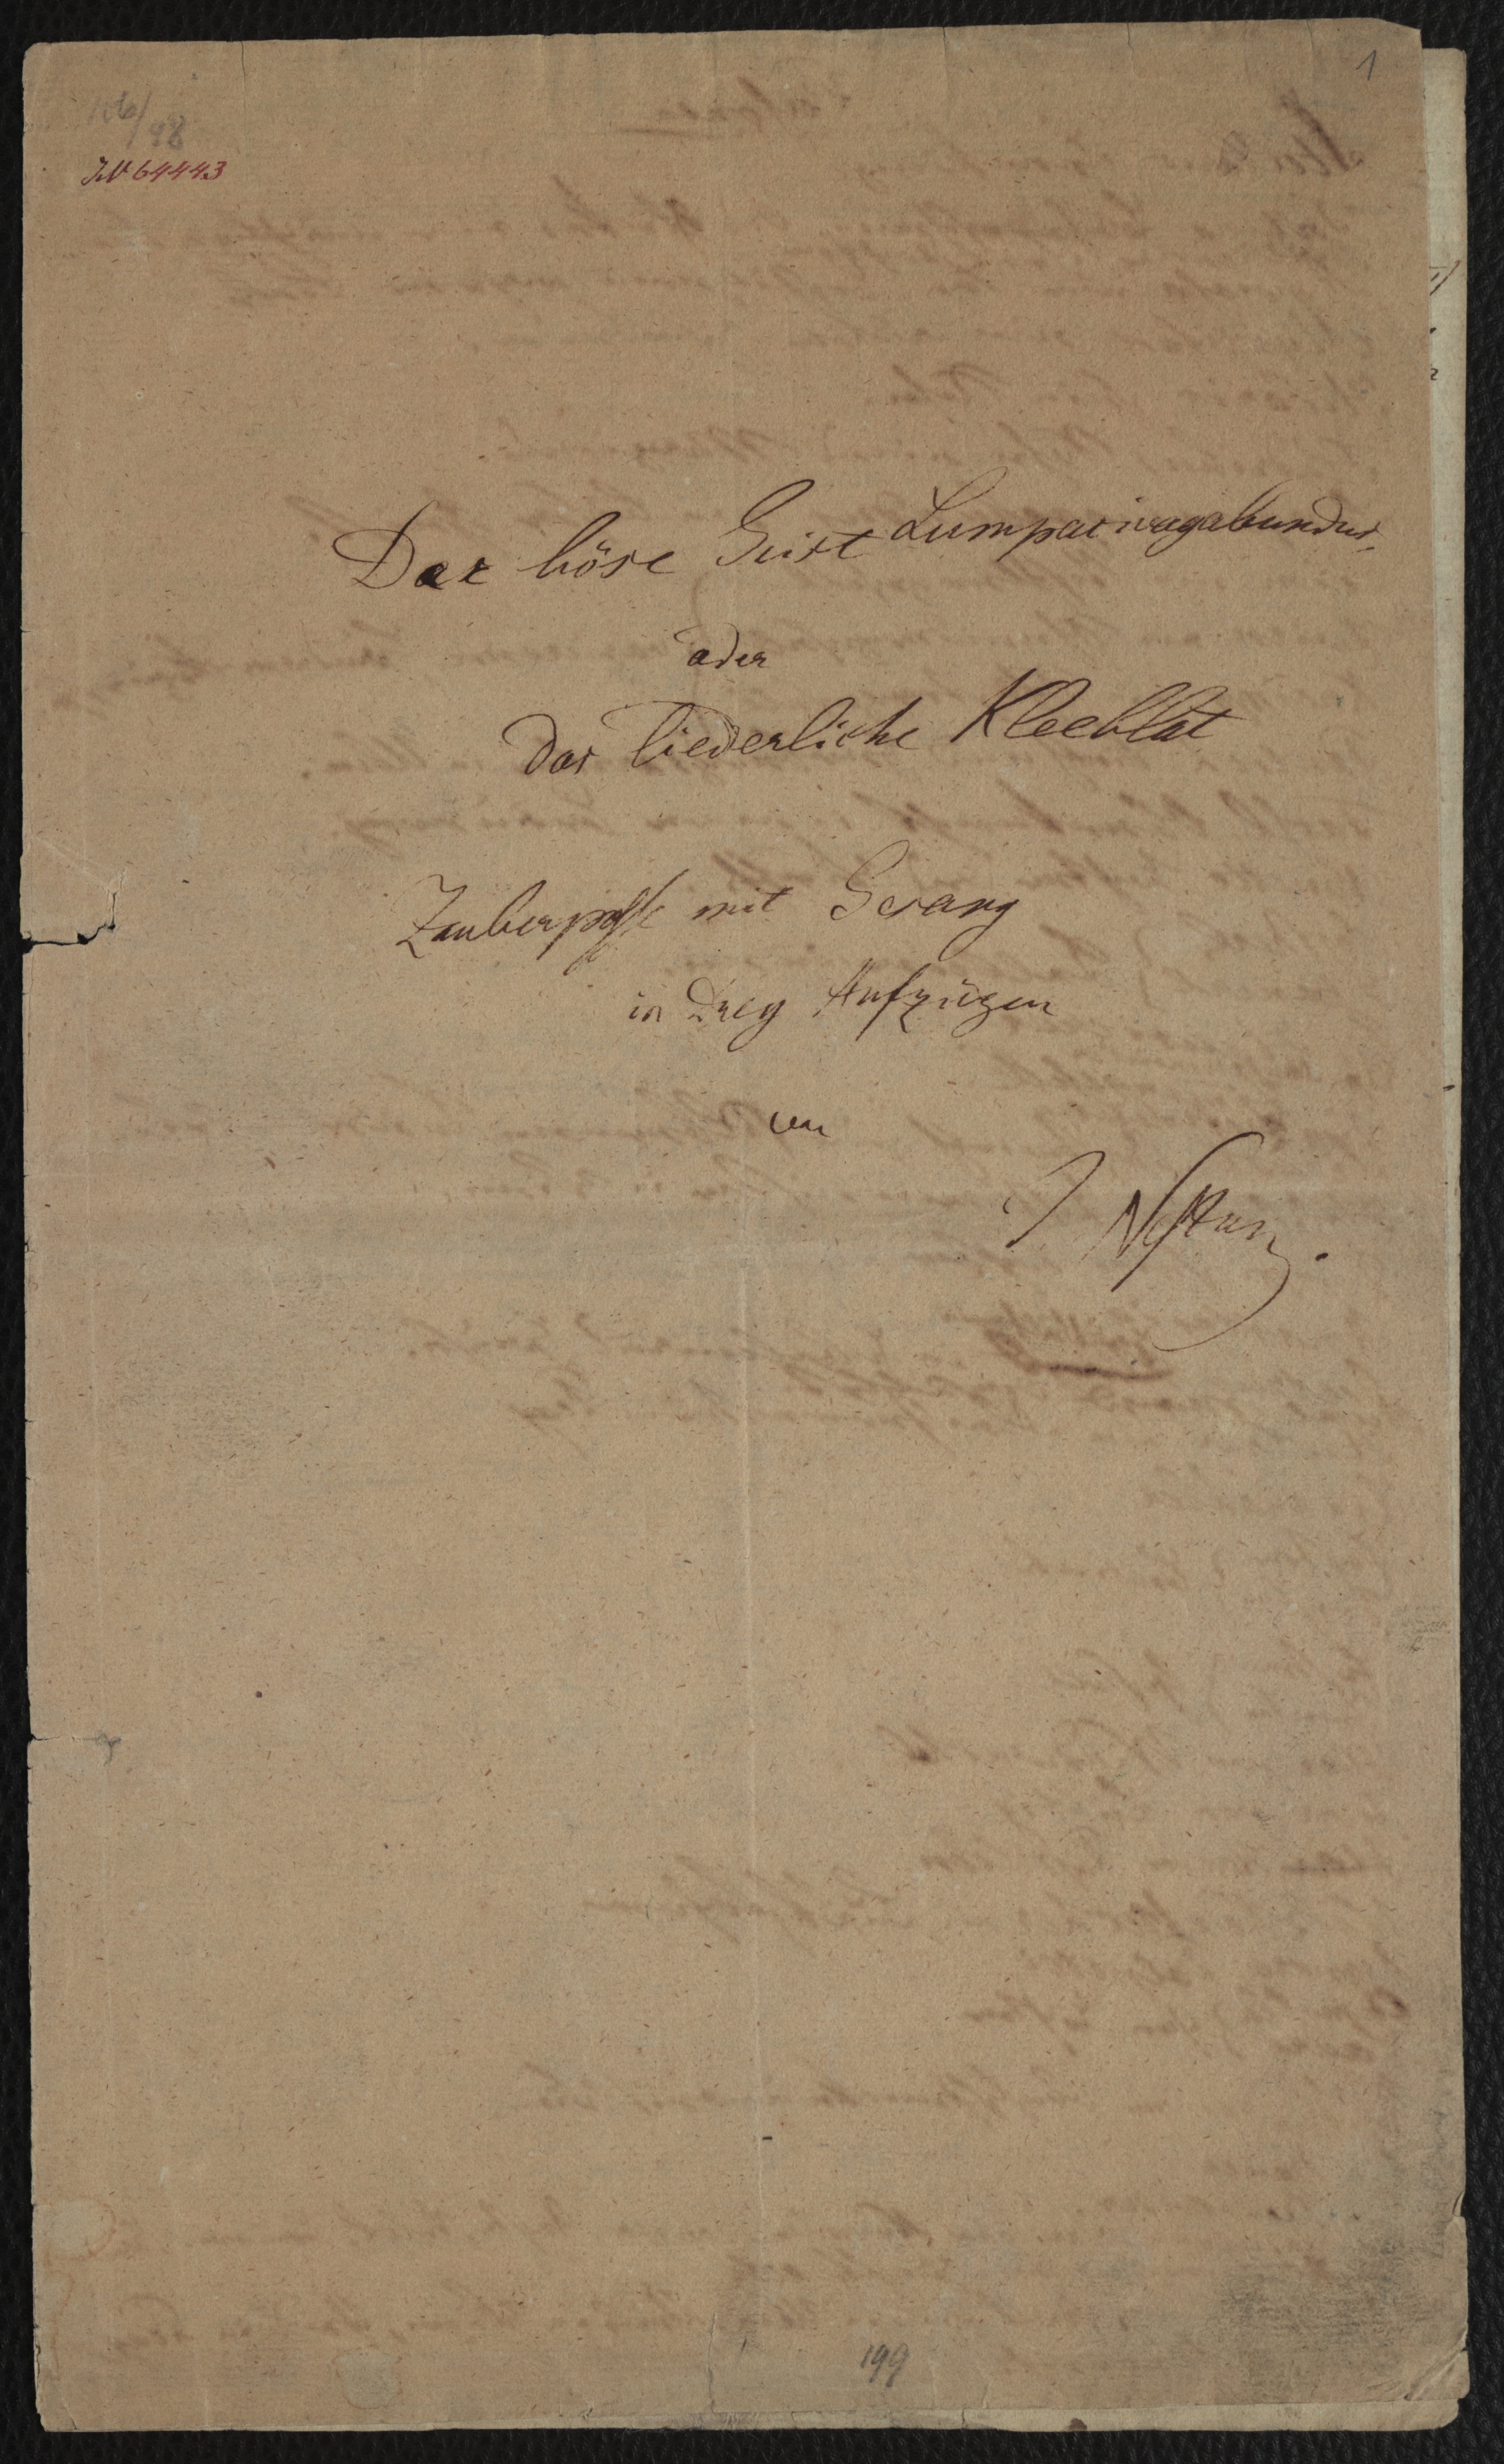 1
IN 64443
Der böse Geist Lumpacivagabundus,
oder
Das liederliche Kleeblat
Zauberposse mit Gesang
in drey Aufzügen
von
J. Nestroy.
199